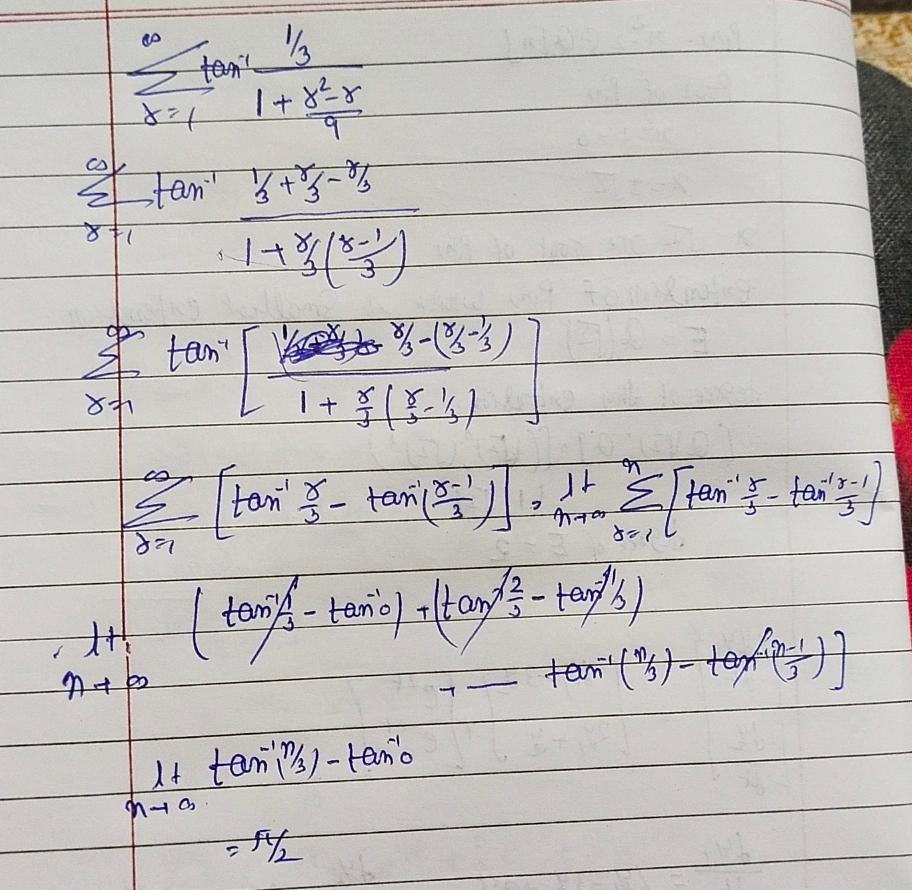 ∞ Σ r=1 tan⁻¹ (1/3) / (1 + (r²-r)/9)
∞ Σ r=1 tan⁻¹ (1/3 + r/3 - r/3) / (1 + r/3 ((r-1)/3))
∞ Σ r=1 tan⁻¹ [ (r/3 - (r/3 - 1/3)) / (1 + r/3 (r/3 - 1/3)) ]
∞ Σ r=1 [tan⁻¹ r/3 - tan⁻¹ ((r-1)/3)] = lt n→∞ n Σ r=1 [tan⁻¹ r/3 - tan⁻¹ (r-1)/3]
lt n→∞ (tan⁻¹ 1/3 - tan⁻¹ 0) + (tan⁻¹ 2/3 - tan⁻¹ 1/3)
+ — tan⁻¹ (n/3) - tan⁻¹ ((n-1)/3)]
lt n→∞ tan⁻¹ (n/3) - tan⁻¹ 0
= π/2